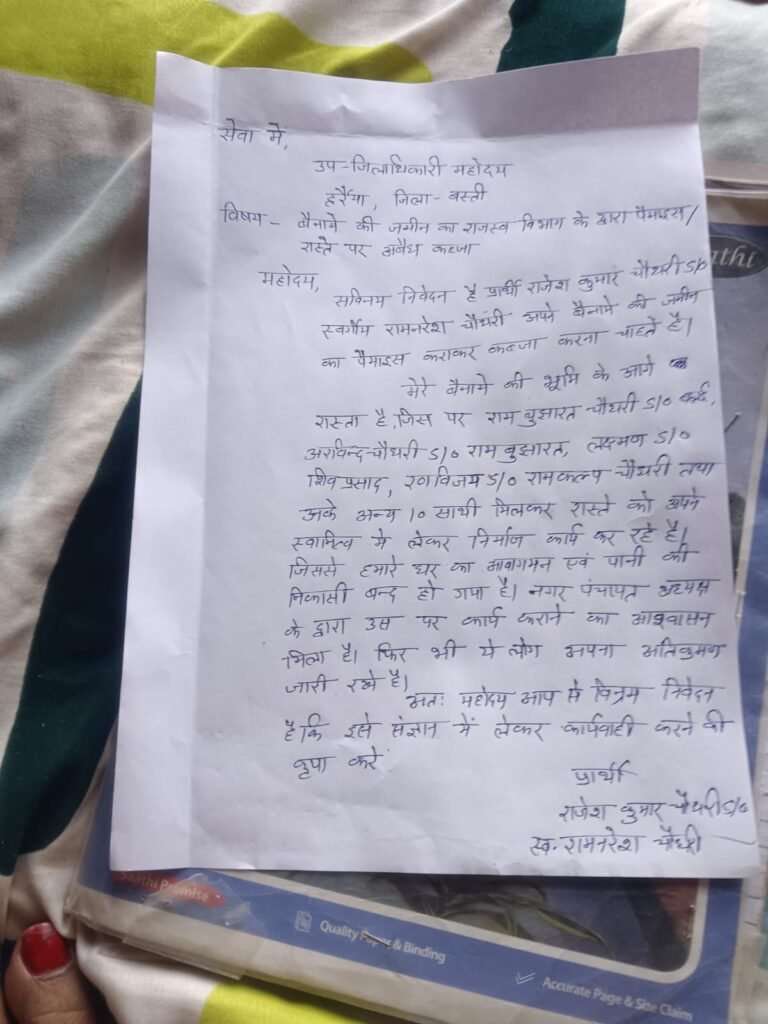 सेवा में,
उप-जिलाधिकारी महोदय
हर्रैया, जिला - बस्ती
विषय - बैनामे की जमीन का राजस्व विभाग के द्वारा पैमाइस/
रास्ते पर अबैध कब्जा
महोदय,
सविनय निवेदन है प्रार्थी राजेश कुमार चौधरी S/O
स्वर्गीय रामनरेश चौधरी अपने बैनामे की जमीन
का पैमाइस कराकर कब्जा करना चाहते है।
मेरे बैनामे की भूमि के आगे
रास्ता है, जिस पर राम बुझारत चौधरी S/O
अरविन्द चौधरी S/O राम बुझारत, लक्ष्मण S/O
शिव प्रसाद, रणविजय S/O रामकल्प चौधरी तथा
अन्य 10 साथी मिलकर रास्ते को अपने
स्वामित्व मे लेकर निर्माण कार्य कर रहे है।
जिससे हमारे घर का आवागमन एवं पानी की
निकासी बन्द हो गया है। नगर पंचायत अध्यक्ष
के द्वारा उस पर कार्य कराने का आश्वासन
मिला है। फिर भी ये लोग अपना अतिक्रमण
जारी रखे है।
अतः महोदय आप से विनम्र निवेदन
है कि इसे संज्ञान में लेकर कार्यवाही करने की
कृपा करें
प्रार्थी
राजेश कुमार चौधरी S/O
स्व. रामनरेश चौधरी
Saathi Promise
Quality Paper & Binding
Accurate Page & Size Claim